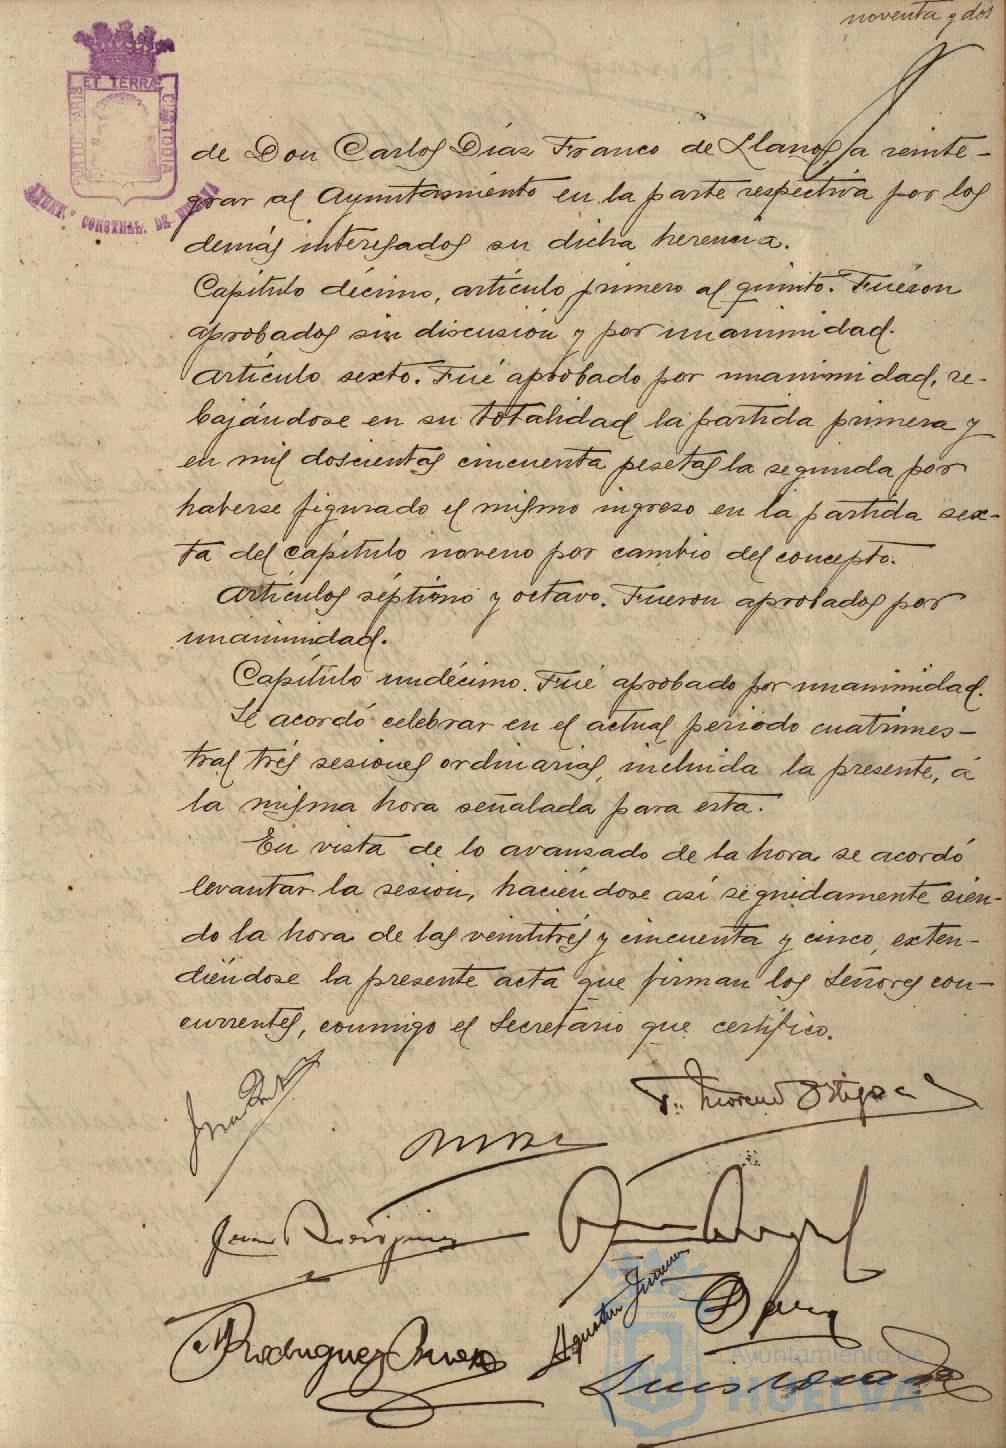 noventa y dos
ET TERRÆ
PORTUS MARIS
CUSTODIA
AYUNT.º CONSTNAL. DE
de Don Carlos Díaz Franco de Llanos, a reinte-
grar al Ayuntamiento en la parte respectiva por los
demás interesados su dicha herencia.
Capítulo décimo, artículo primero al quinto. Fuéron
aprobados sin discusión y por unanimidad.
Artículo sexto. Fué aprobado por unanimidad, re-
bajándose en su totalidad la partida primera y
en mil doscientas cincuenta pesetas la segunda por
haberse figurado el mismo ingreso en la partida sex-
ta del capítulo noveno por cambio del concepto.
Artículos séptimo y octavo. Fueron aprobados por
unanimidad.
Capítulo undécimo. Fué aprobado por unanimidad.
Se acordó celebrar en el actual periodo cuatrimes-
tral trés sesiones ordinarias, incluida la presente, á
la misma hora señalada para esta.
En vista de lo avanzado de la hora se acordó
levantar la sesion, haciéndose así seguidamente sien-
do la hora de las veintitrés y cincuenta y cinco, exten-
diéndose la presente acta que firman los Señores con-
currentes, conmigo el Secretario que certifico.
Moreno Ortega
Juan Rodríguez
Agustín
Rodriguez
Luis
Ayuntamiento de
HUELVA